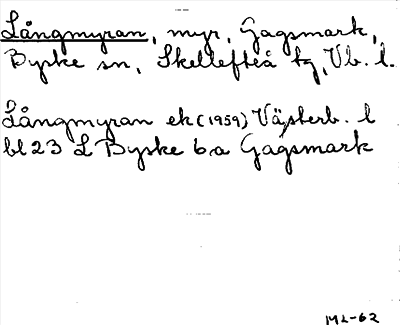 Långmyran, myr, Gagsmark,
Byske sn, Skellefteå tg, Vb. l.
Långmyran ek (1959) Västerb. l
bl 23 L Byske 6a Gagsmark
ML-62